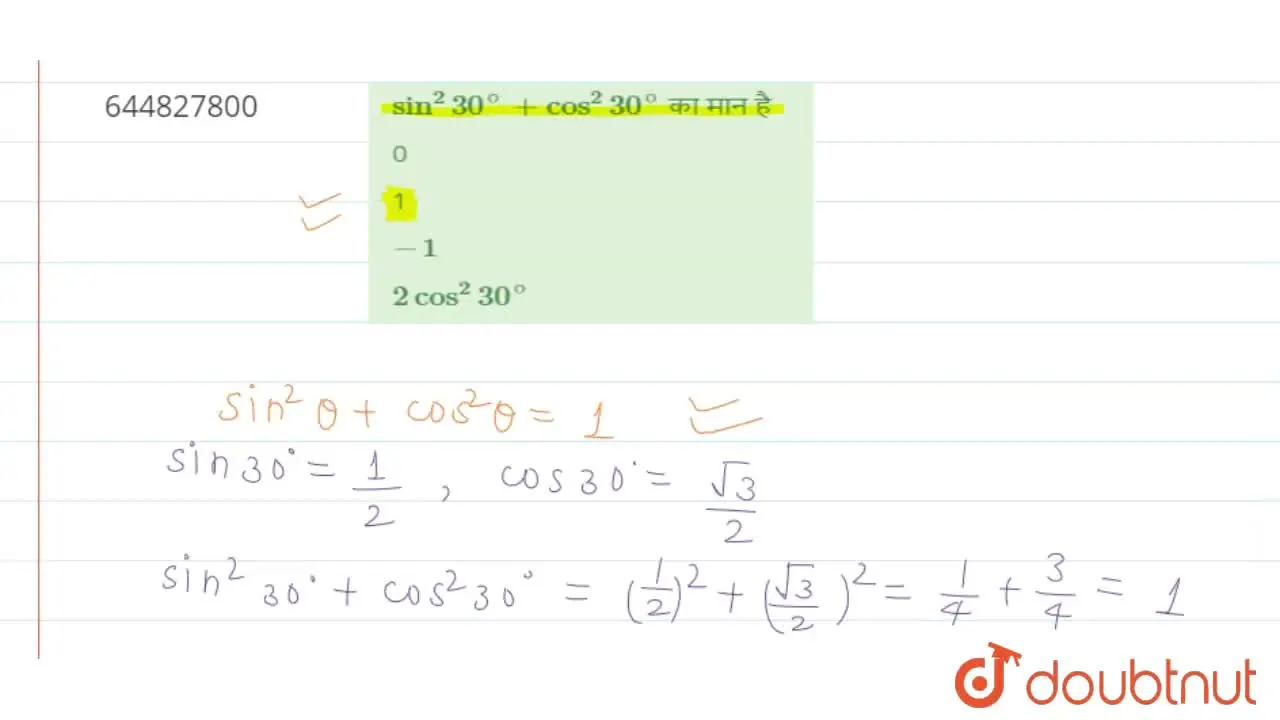 644827800
sin² 30° + cos² 30° का मान है
0
1
−1
2 cos² 30°
sin² θ + cos² θ = 1
sin 30° = 1/2 , cos 30° = √3/2
sin² 30° + cos² 30° = (1/2)² + (√3/2)² = 1/4 + 3/4 = 1
doubtnut